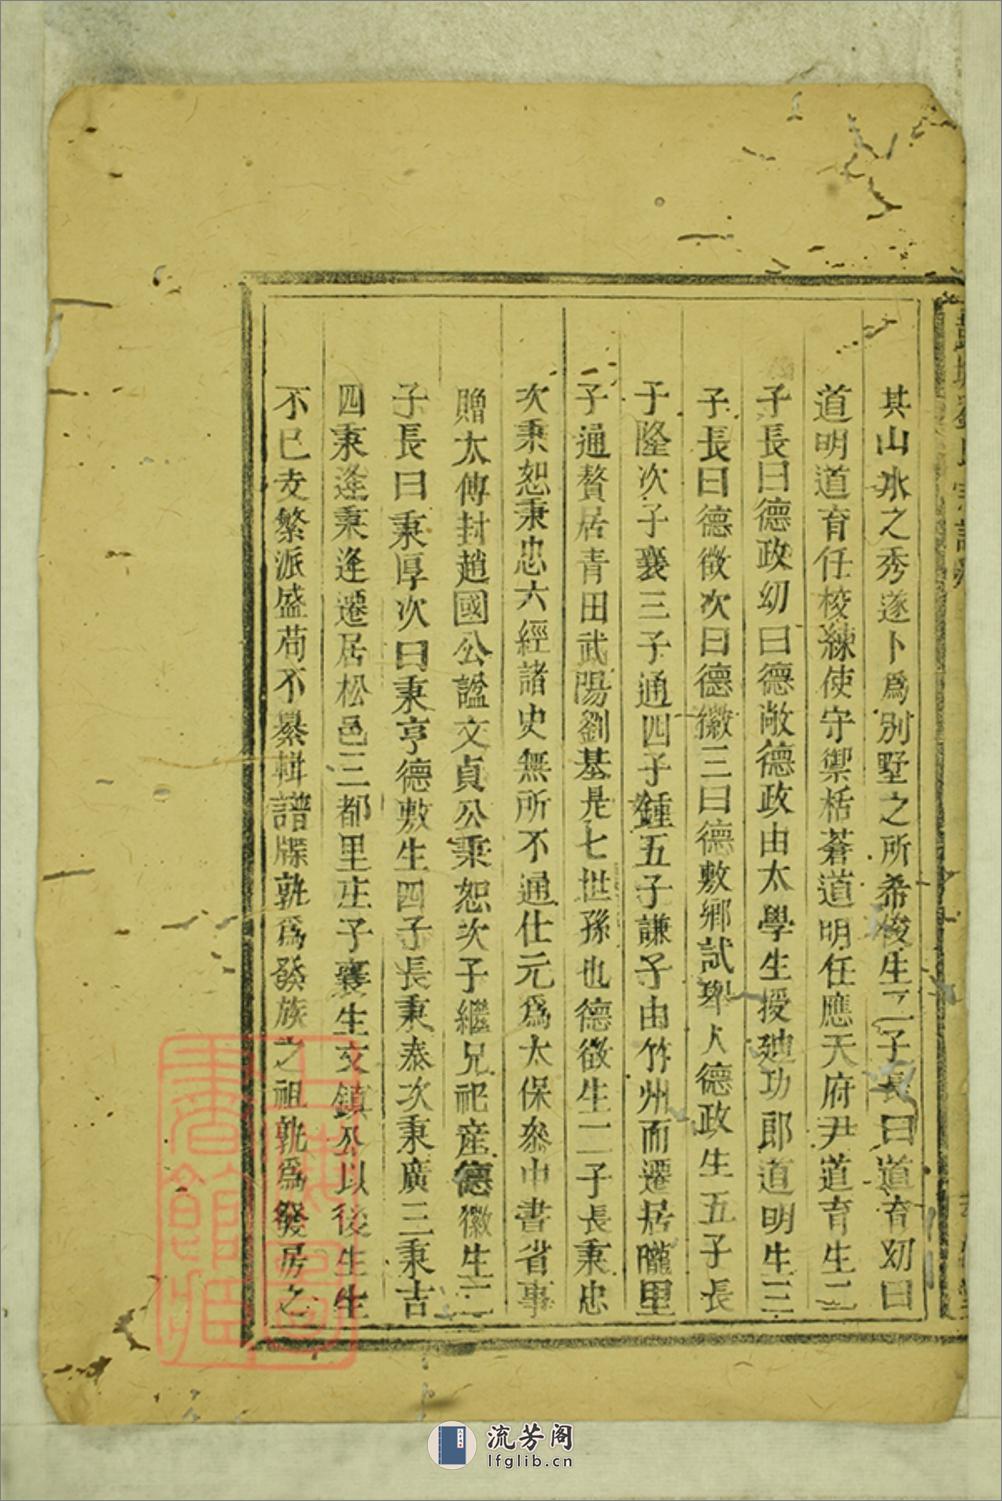 彭城劉氏宗譜
其山水之秀遂卜爲別墅之所希俊生二子長曰道育幼曰
道明道育任校練使守禦栝蒼道明任應天府尹道育生二
子長曰德政幼曰德敞德政由太學生授廸功郎道明生三
子長曰德徵次曰德徽三曰德敷鄉試舉人德政生五子長
于隆次子襄三子通四子鍾五子謙子由竹州而遷居隴里
子通贅居青田武陽劉基是七世孫也德徵生二子長秉忠
次秉恕秉忠六經諸史無所不通仕元爲太保叅中書省事
贈太傅封趙國公謚文貞公秉恕次子繼兄祀產德徽生二
子長曰秉厚次曰秉亨德敷生四子長秉泰次秉廣三秉吉
四秉逢秉逢遷居松邑三都里庄子襄生文鎮公以後生生
不已支繁派盛苟不纂輯譜牒孰爲發族之祖孰爲發居之
上海圖書館藏
流芳阁
lfglib.cn